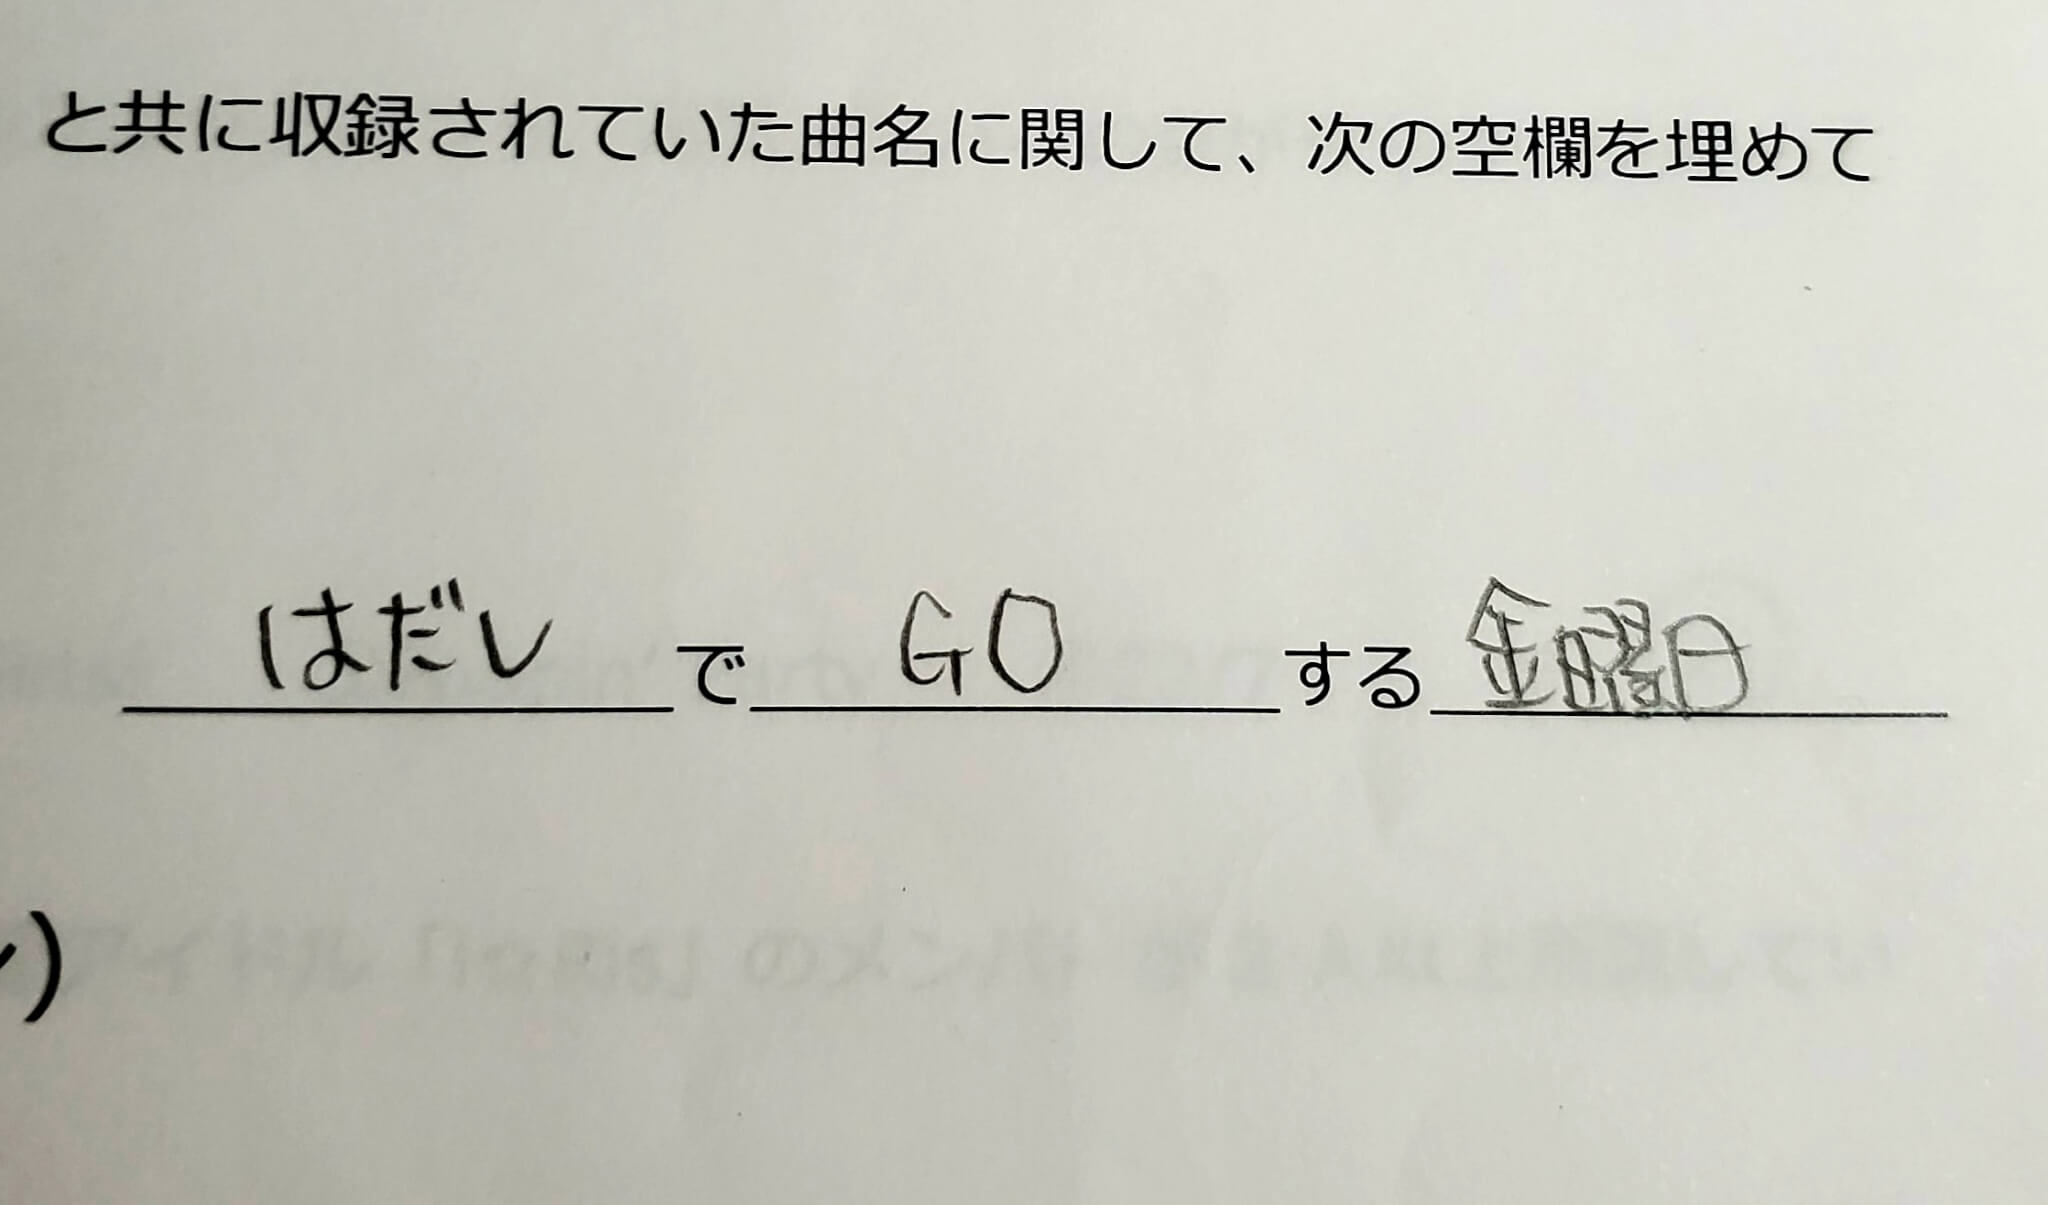 と共に収録されていた曲名に関して、次の空欄を埋めて
はだしでGOする金曜日
)